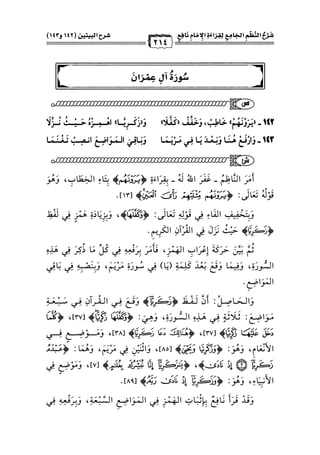 شرح النظم الجامع لقراءة الإمام نافع
شرح البيتين (١٤٢ و١٤٣)
٢١٤
سُورَةُ آلِ عِمْرَانَ
١٤٢ - «يَرَوْنَهُمْ» خَاطِبْ، وَخَفِّفْ «كَفَلَا» وَ«زَكَرِيَّا» اهْمِزْهُ حَيْثُ نُزِّلَا
١٤٣ - وَارْفَعْ هُنَا وَبَعْدَ يَا فِي مَرْيَمَا وَبَاقِيَ المَوَاضِعِ انْصِبْ تَغْنَمَا
أَمَرَ النَّاظِمُ - غَفَرَ اللهُ لَهُ - بِقِرَاءَةِ ﴿يَرَوْنَهُم﴾ بِتَاءِ الخِطَابِ، وَهُوَ
قَوْلُهُ تَعَالَى: ﴿يَرَوْنَهُم مِّثْلَيْهِمْ رَأْيَ الْعَيْنِ﴾ [١٣].
وَبِتَخْفِيفِ الفَاءِ فِي قَوْلِهِ تَعَالَى: ﴿وَكَفَّلَهَا﴾، وَبِزِيَادَةِ هَمْزٍ فِي لَفْظِ
﴿زَكَرِيَّا﴾ حَيْثُ نَزَلَ فِي القُرْآنِ الكَرِيمِ.
ثُمَّ بَيَّنَ حَرَكَةَ إِعْرَابِ الهَمْزِ، فَأَمَرَ بِرَفْعِهِ فِي كُلِّ مَا ذُكِرَ فِي هَذِهِ
السُّورَةِ، وَفِيمَا وَقَعَ بَعْدَ كَلِمَةِ (يَا) فِي سُورَةِ مَرْيَمَ، وَبِنَصْبِهِ فِي بَاقِي
المَوَاضِعِ.
وَالحَاصِلُ: أَنَّ لَفْظَ ﴿زَكَرِيَّا﴾ وَقَعَ فِي القُرْآنِ فِي سَبْعَةِ
مَوَاضِعَ: ثَلَاثَةٍ فِي هَذِهِ السُّورَةِ، وَهِيَ: ﴿وَكَفَّلَهَا زَكَرِيَّا﴾ [٣٧]، ﴿كُلَّمَا
دَخَلَ عَلَيْهَا زَكَرِيَّا﴾ [٣٧]، ﴿هُنَالِكَ دَعَا زَكَرِيَّا﴾ [٣٨]، وَمَوْضِعٍ فِي
الأَنْعَامِ، وَهُوَ: ﴿وَزَكَرِيَّا وَيَحْيَى﴾ [٨٥]، وَاثْنَيْنِ فِي مَرْيَمَ، وَهُمَا: ﴿عَبْدَهُ
زَكَرِيَّا إِذْ نَادَى﴾، ﴿يَازَكَرِيَّا إِنَّا نُبَشِّرُكَ بِغُلَامٍ﴾ [٧]، وَمَوْضِعٍ فِي
الأَنْبِيَاءِ، وَهُوَ: ﴿وَزَكَرِيَّا إِذْ نَادَى رَبَّهُ﴾ [٨٩].
وَقَدْ قَرَأَ نَافِعٌ بِإِثْبَاتِ الهَمْزِ فِي المَوَاضِعِ السَّبْعَةِ، وَبِرَفْعِهِ فِي